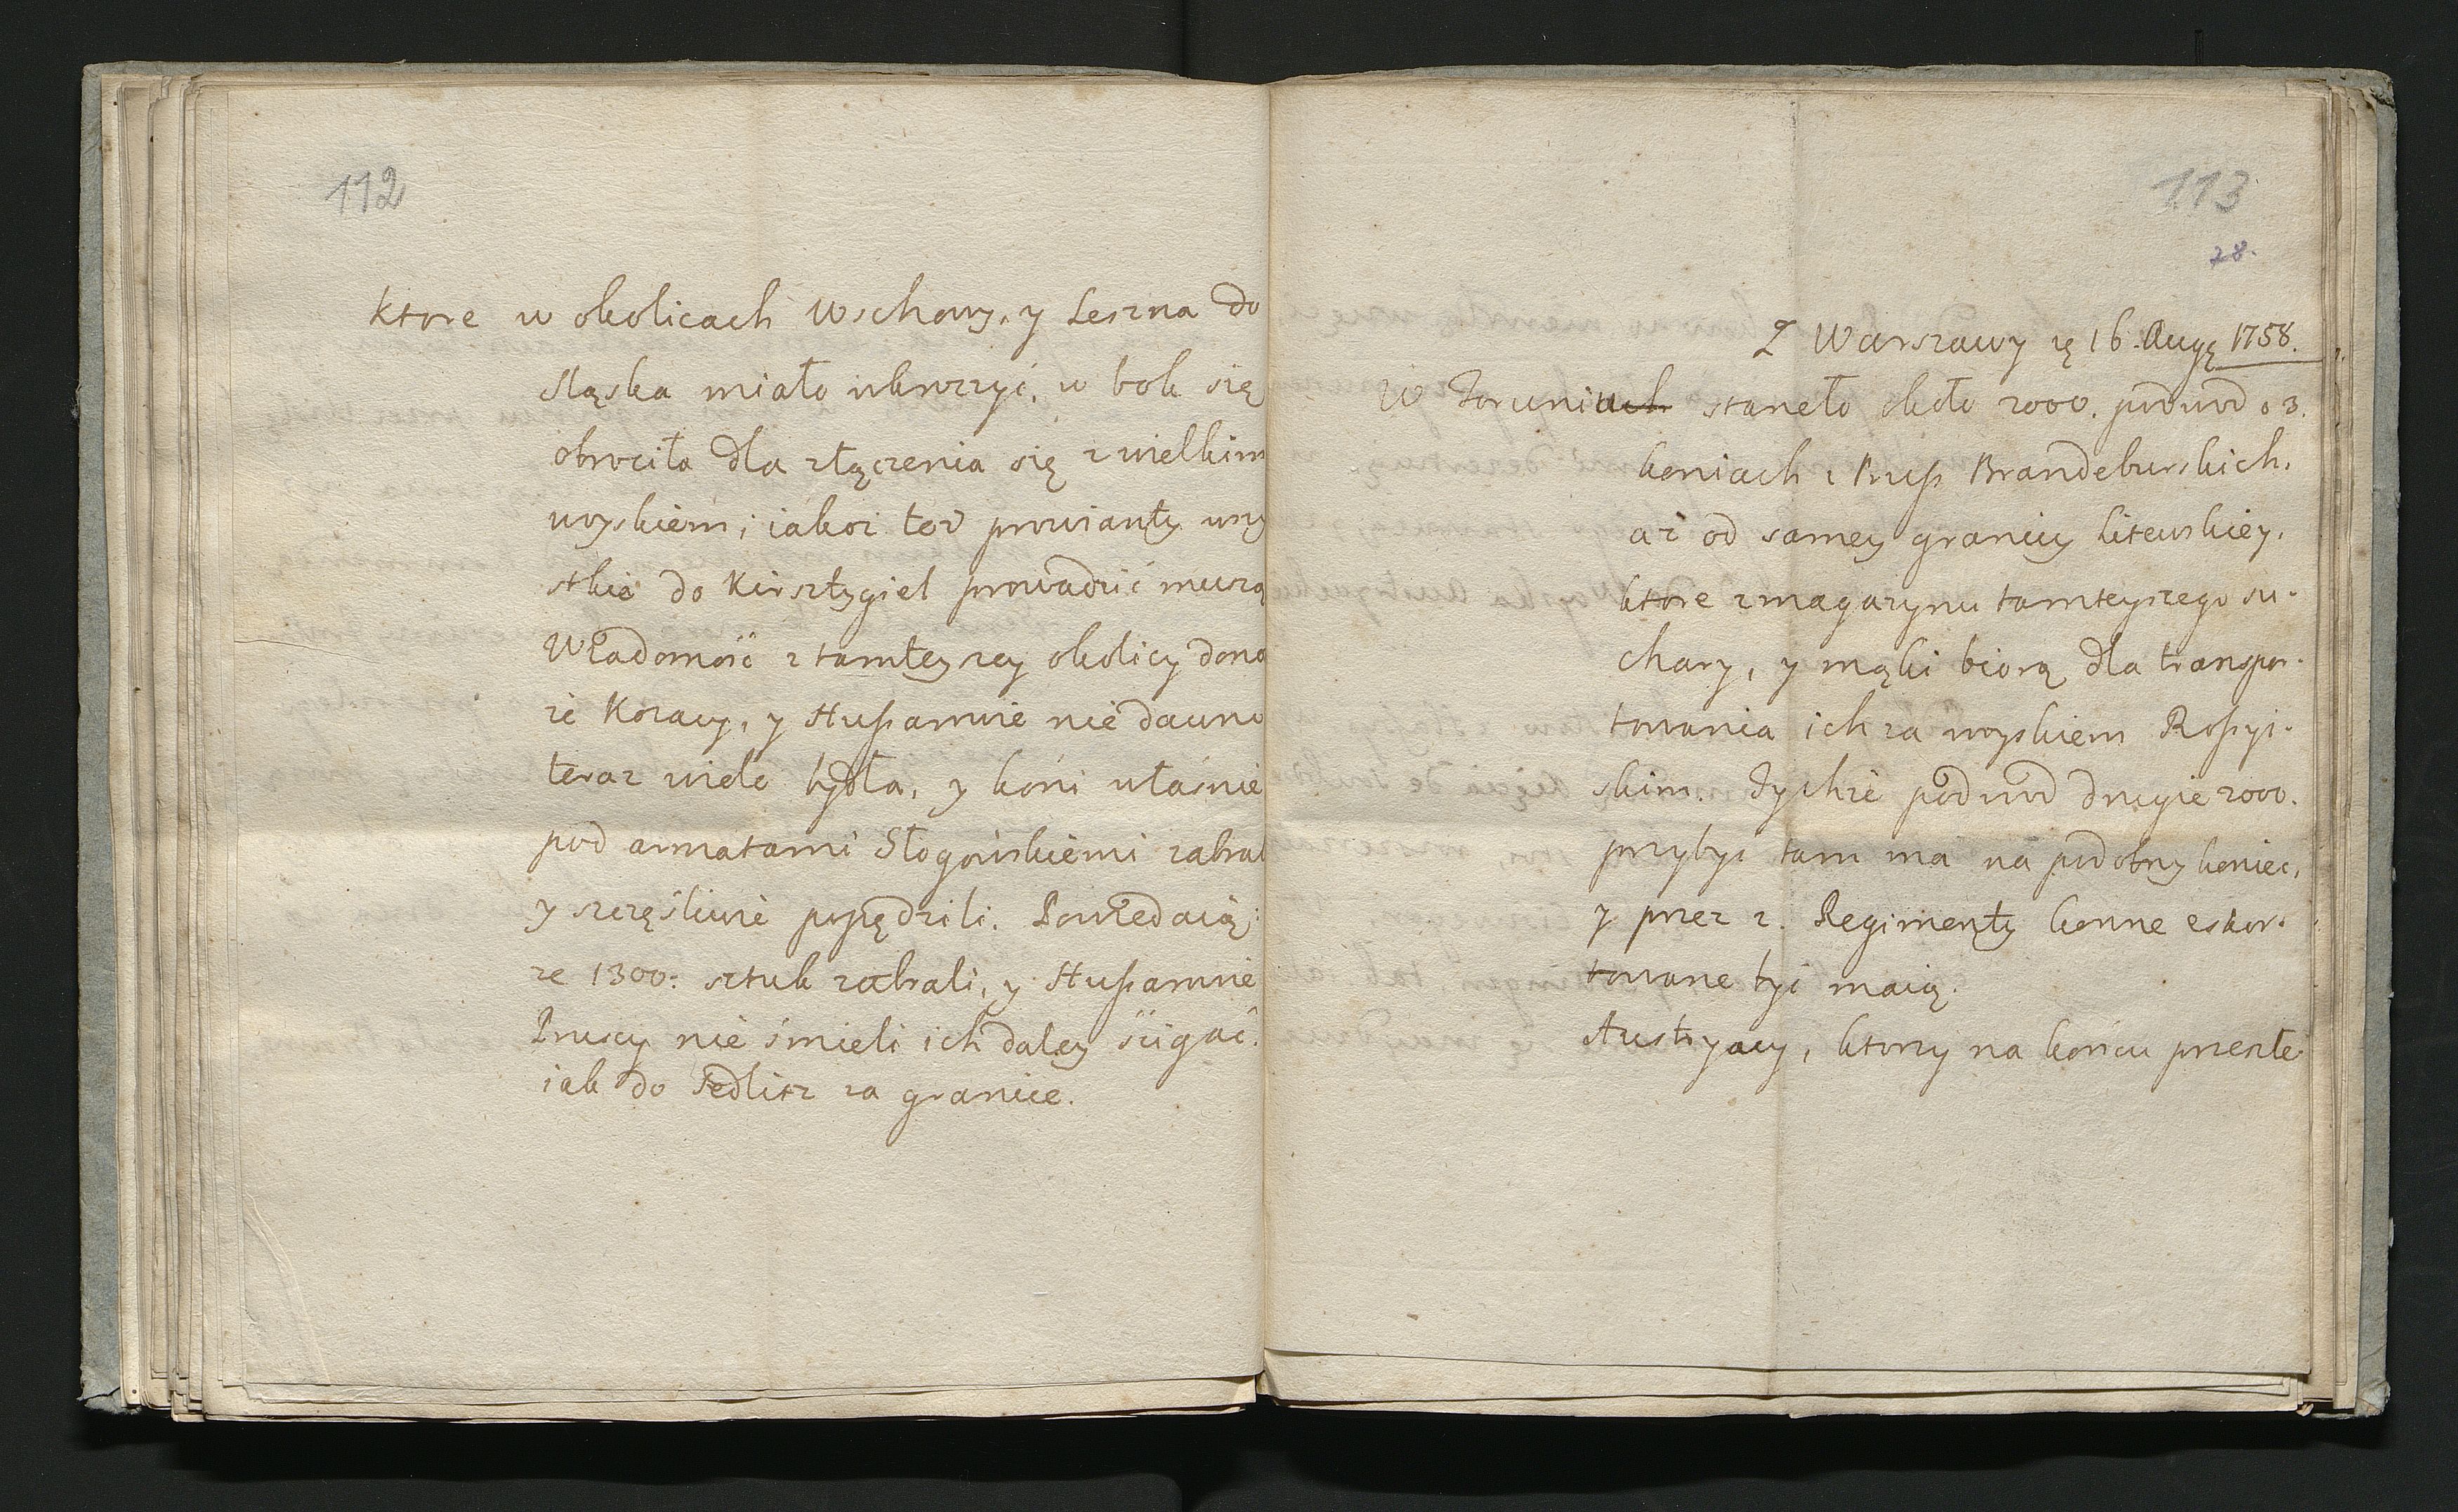 112
Ktore w okolicach Wschowy, y Leszna do
Sląska miało wkroczyć, w bok się
obrociła dla złączenia się z wielkim
woyskiem; iakoż też prowianty wszy
stkie do Kirsztygiel prowadzić muszą
Wiadomość z tamteyszey okolicy dono
że Kozacy, y Hussarowie nie dawno
teraz wiele bydła, y koni właśnie
pod armatami Głogowskiemi zabral
y szczęśliwie popędzili. Powiedaią:
że 1300: sztuk zabrali, y Hussarowie
Pruscy nie śmieli ich daley ścigać.
iak do Sedlitz za granice.
113
28.
Z Warszawy 16. Aug 1758.
W Toruniuch staneło około 2000. podwod o 3.
koniach z Pruss Brandeburskich,
aż od samey granicy Litewskiey,
ktore z magazynu tamteyszego su-
chary, y mąki biorą dla transpor-
towania ich za woyskiem Rossyi-
skim. Tychże podwod drugie 2000.
przybyć tam ma na podobny koniec,
y przez 2. Regimenty konne eskor-
towane być maią.
Austryacy, ktorzy na końcu przeszłe